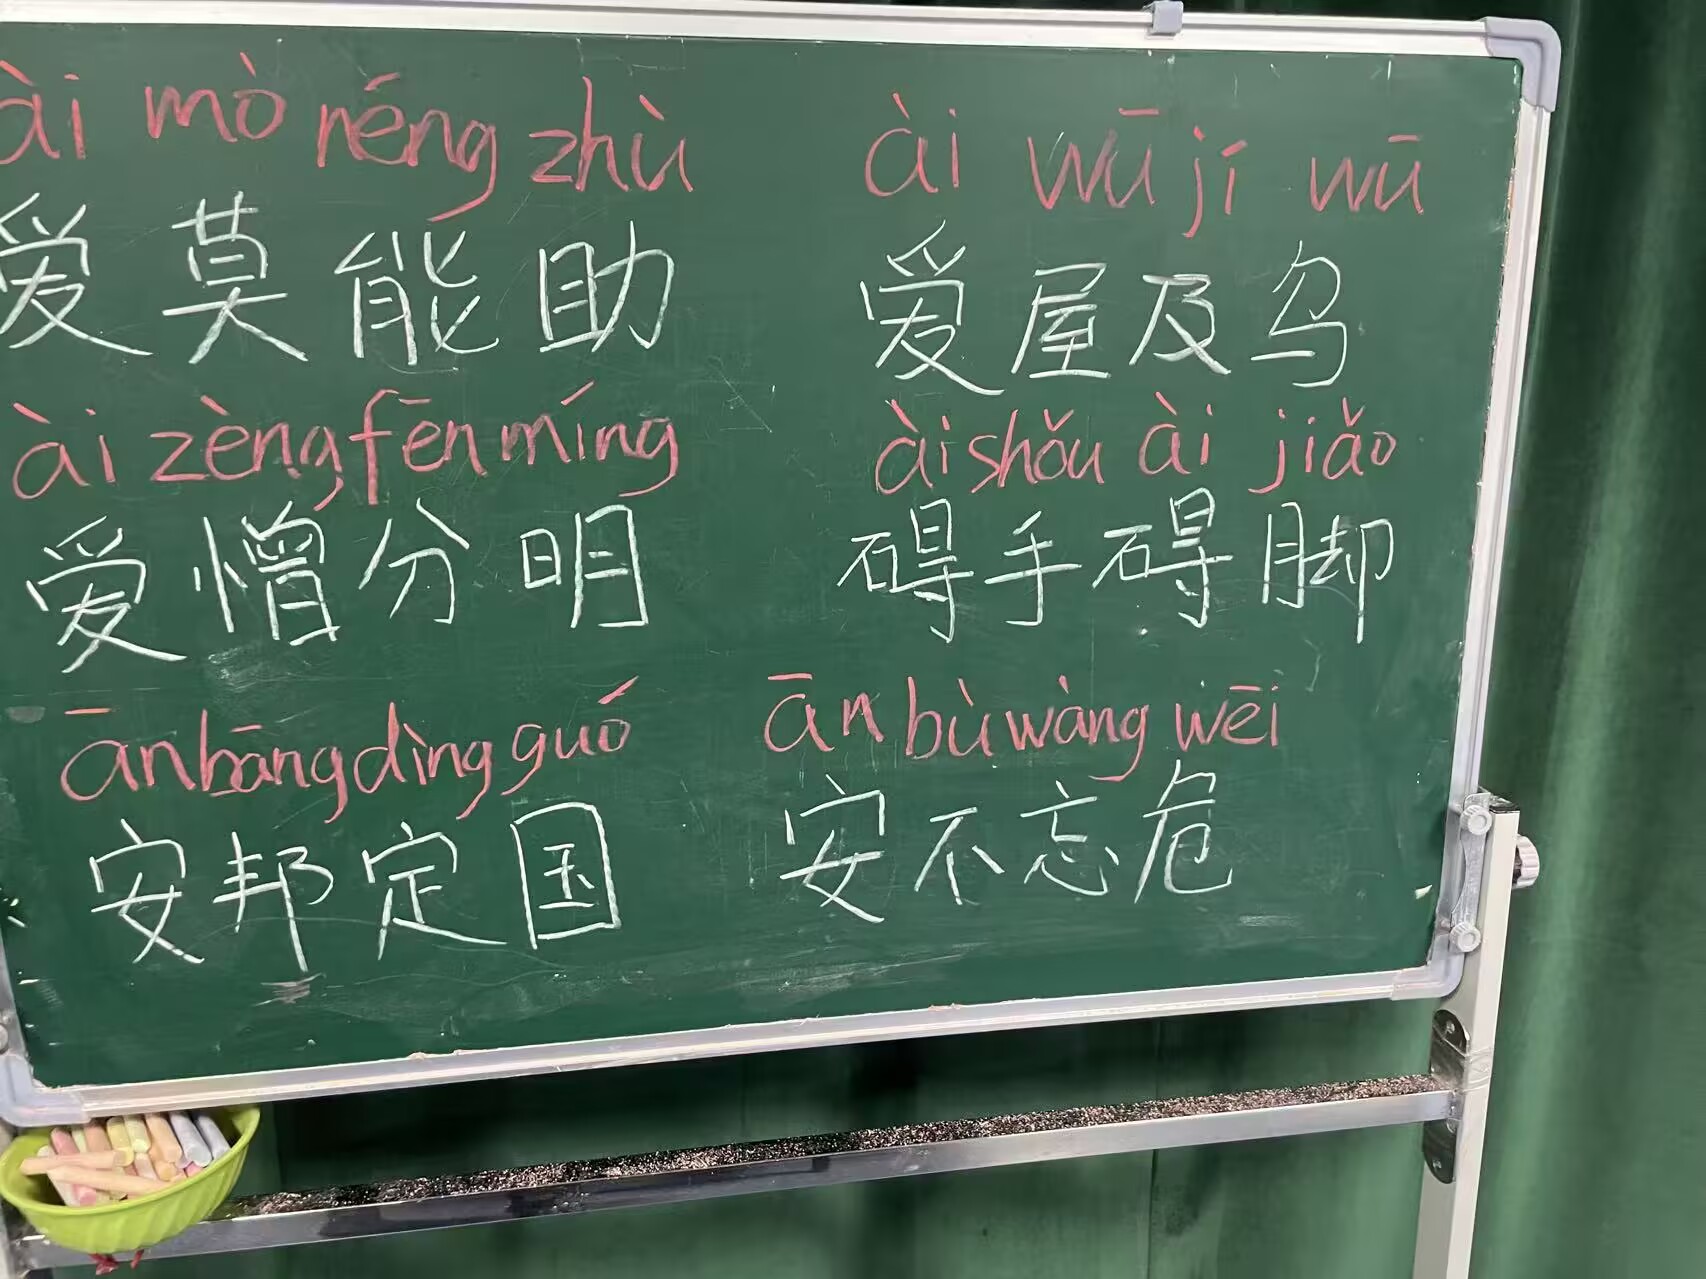 ài mò néng zhù ài wū jí wū
爱莫能助 爱屋及乌
ài zèng fēn míng ài shǒu ài jiǎo
爱憎分明 碍手碍脚
ān bāng dìng guó ān bù wàng wēi
安邦定国 安不忘危